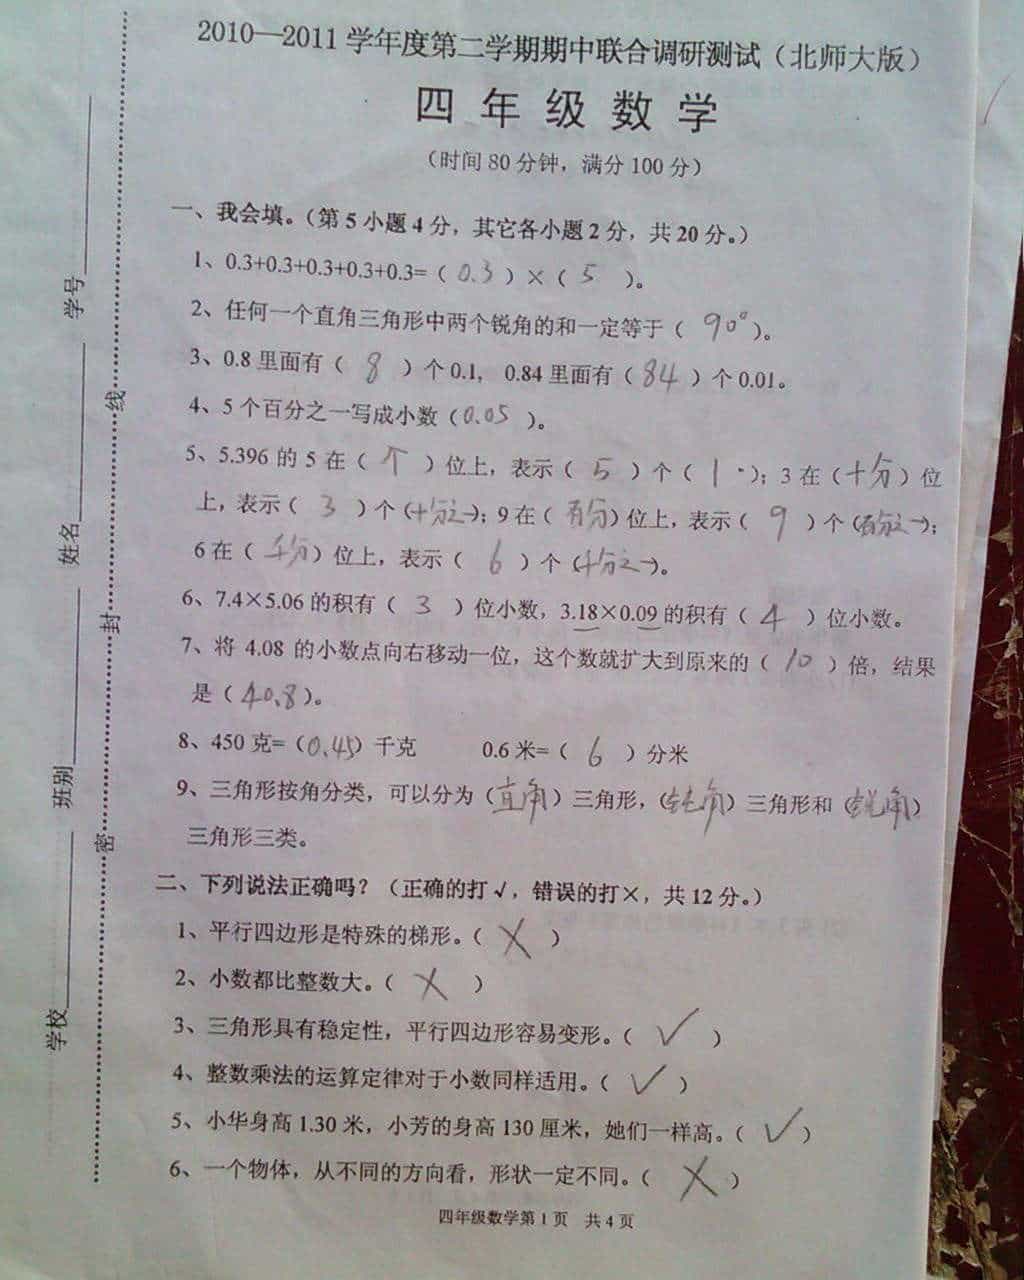 2010—2011 学年度第二学期期中联合调研测试（北师大版）
四年级数学
（时间 80 分钟，满分 100 分）
一、我会填。（第 5 小题 4 分，其它各小题 2 分，共 20 分。）
1、0.3+0.3+0.3+0.3+0.3=（ 0.3 ）×（ 5 ）。
2、任何一个直角三角形中两个锐角的和一定等于（ 90° ）。
3、0.8 里面有（ 8 ）个 0.1， 0.84 里面有（ 84 ）个 0.01。
4、5 个百分之一写成小数（0.05 ）。
5、5.396 的 5 在（ 个 ）位上，表示（ 5 ）个（ 1 ）；3 在（十分）位
上，表示（ 3 ）个（十分之一）；9 在（ 百分）位上，表示（ 9 ）个（百分之一）；
6 在（ 千分）位上，表示（ 6 ）个（千分之一）。
6、7.4×5.06 的积有（ 3 ）位小数，3.18×0.09 的积有（ 4 ）位小数。
7、将 4.08 的小数点向右移动一位，这个数就扩大到原来的（ 10 ）倍，结果
是（ 40.8 ）。
8、450 克=（0.45）千克 0.6 米=（ 6 ）分米
9、三角形按角分类，可以分为（直角）三角形，（钝角）三角形和（锐角）
三角形三类。
二、下列说法正确吗？（正确的打√，错误的打×，共 12 分。）
1、平行四边形是特殊的梯形。（ × ）
2、小数都比整数大。（ × ）
3、三角形具有稳定性，平行四边形容易变形。（ √ ）
4、整数乘法的运算定律对于小数同样适用。（ √ ）
5、小华身高 1.30 米，小芳的身高 130 厘米，她们一样高。（ √ ）
6、一个物体，从不同的方向看，形状一定不同。（ × ）
四年级数学第 1 页 共 4 页
学号
姓名
班别
学校
线
封
密